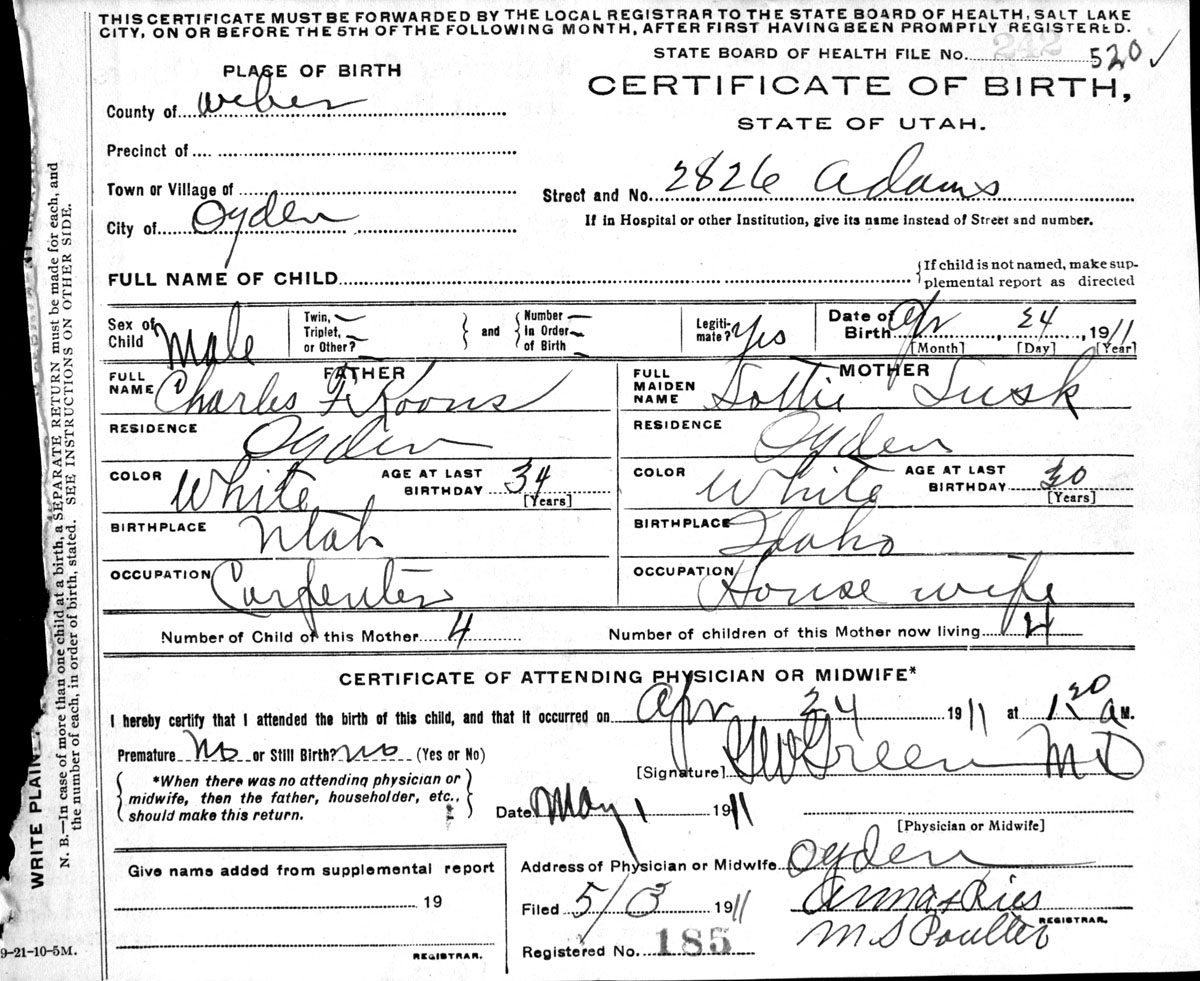 THIS CERTIFICATE MUST BE FORWARDED BY THE LOCAL REGISTRAR TO THE STATE BOARD OF HEALTH, SALT LAKE
CITY, ON OR BEFORE THE 5TH OF THE FOLLOWING MONTH, AFTER FIRST HAVING BEEN PROMPTLY REGISTERED.
STATE BOARD OF HEALTH FILE No. 242 520 ✓
PLACE OF BIRTH
CERTIFICATE OF BIRTH,
County of Weber
STATE OF UTAH.
Precinct of
Town or Village of
Street and No. 2826 Adams
City of Ogden
If in Hospital or other Institution, give its name instead of Street and number.
FULL NAME OF CHILD
{If child is not named, make sup-
plemental report as directed
Sex of Child Male
Twin, —
Triplet, —
or Other? —
} and {
Number —
in Order —
of Birth —
Legiti-
mate? Yes
Date of
Birth Apr 24, 1911
[Month] [Day] [Year]
FATHER
FULL
NAME Charles F Koons
MOTHER
FULL
MAIDEN
NAME Lottie Lusk
RESIDENCE Ogden
RESIDENCE Ogden
COLOR White
AGE AT LAST
BIRTHDAY 34
[Years]
COLOR White
AGE AT LAST
BIRTHDAY 30
[Years]
BIRTHPLACE Utah
BIRTHPLACE Idaho
OCCUPATION Carpenter
OCCUPATION House wife
Number of Child of this Mother 4
Number of children of this Mother now living 4
CERTIFICATE OF ATTENDING PHYSICIAN OR MIDWIFE*
I hereby certify that I attended the birth of this child, and that it occurred on Apr 24 1911 at 1:30 a M.
Premature No or Still Birth? no (Yes or No)
[Signature] GW Green MD
{*When there was no attending physician or
midwife, then the father, householder, etc.,
should make this return.}
Date May 1 1911
[Physician or Midwife]
Give name added from supplemental report
19
REGISTRAR.
Address of Physician or Midwife Ogden
Filed 5/3 1911
REGISTRAR.
M S Poulter
Registered No. 185
9-21-10-5M.
WRITE PLAINLY
N. B.—In case of more than one child at a birth, a SEPARATE RETURN must be made for each, and
the number of each, in order of birth, stated. SEE INSTRUCTIONS ON OTHER SIDE.